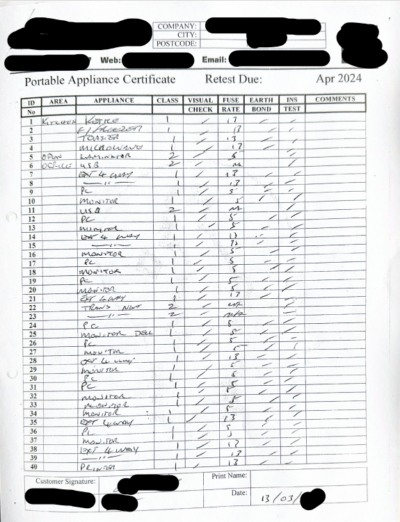 COMPANY:
CITY:
POSTCODE:
Web: Email:
Portable Appliance Certificate Retest Due: Apr 2024
ID No AREA APPLIANCE CLASS VISUAL CHECK FUSE RATE EARTH BOND INS TEST COMMENTS
1 KITCHEN 1 / 13 / /
2 1 / 13 / /
3 TOASTER 1 / 13 / /
4 MICROWAVE 1 / 13 / /
5 OPEN LAMINATOR 2 / 5 /
6 OFFICE USB 2 / /
7 EXT 4 WAY 1 / 13 / /
8 1 / 13 / /
9 PC 1 / 5 / /
10 MONITOR 1 / 5 / /
11 USB 2 / /
12 PC 1 / 5 / /
13 MONITOR 1 / 5 / /
14 EXT 4 WAY 1 / 13 / /
15 1 / 13 / /
16 MONITOR 1 / 5 / /
17 PC 1 / 5 / /
18 MONITOR 1 / 5 / /
19 PC 1 / 5 / /
20 MONITOR 1 / 5 / /
21 EXT 4 WAY 1 / 13 / /
22 2 /
23 2 /
24 PC 1 / 5 / /
25 MONITOR DELL 1 / 5 / /
26 PC 1 / 5 / /
27 MONITOR 1 / 5 / /
28 EXT 4 WAY 1 / 13 / /
29 MONITOR 1 / 5 / /
30 PC 1 / 5 / /
31 PC 1 / 5 / /
32 MONITOR 1 / 5 / /
33 MONITOR 1 / 5 / /
34 MONITOR 1 / 5 / /
35 EXT 4 WAY 1 / 13 / /
36 PC 1 / 5 / /
37 MONITOR 1 / 5 / /
38 EXT 4 WAY 1 / 13 / /
39 1 / 13 / /
40 PRINTER 1 / 13 / /
Customer Signature: Print Name:
Date: 13/03/